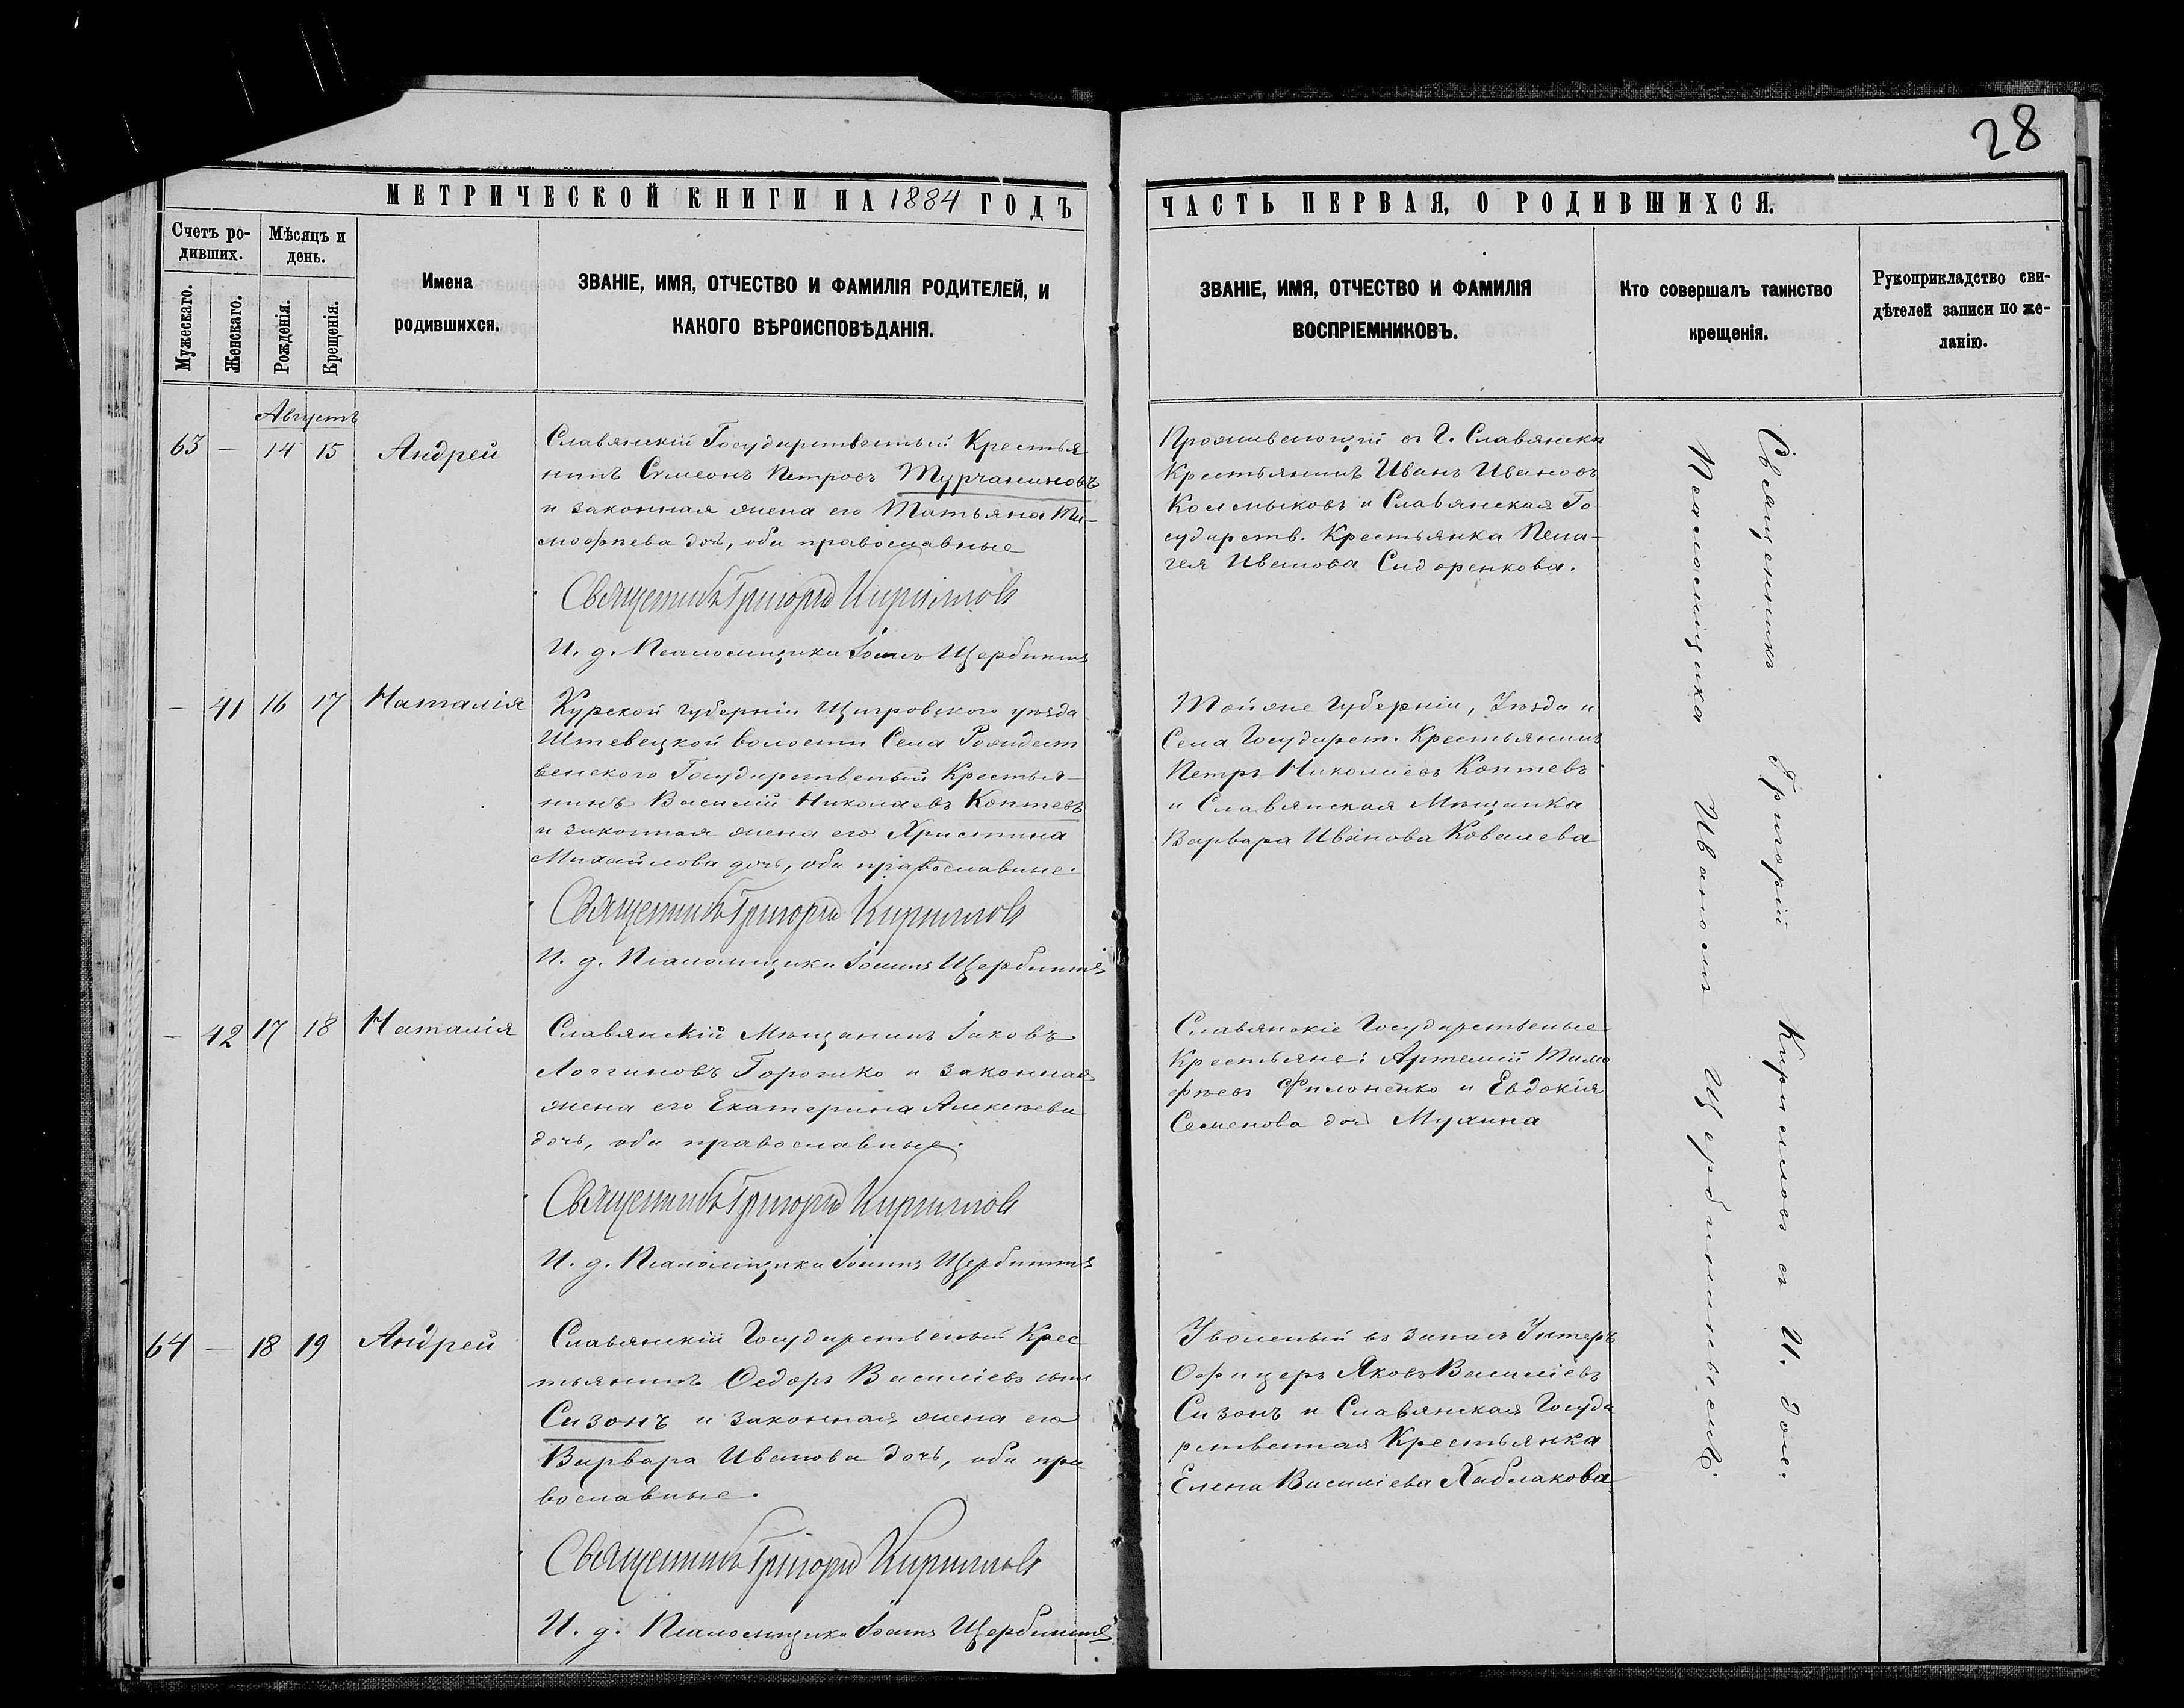 28
МЕТРИЧЕСКОЙ КНИГИ НА 1884 ГОДЪ
Счетъ ро-
дивших.
Мѣсяцъ и
день.
Мужескаго.
Женскаго.
Рожденія.
Крещенія.
Имена
родившихся.
ЗВАНІЕ, ИМЯ, ОТЧЕСТВО И ФАМИЛІЯ РОДИТЕЛЕЙ, И
КАКОГО ВѢРОИСПОВѢДАНІЯ.
Августъ
63 — 14 15 Андрей
Славянскій Государственый Крестья
нинъ Симеонъ Петровъ Турчаниновъ
и законная жена его Татьяна Ти-
мофѣева доч, оба православные
Священникъ Григорій Кирилловъ
И. д. Псаломщика Іоаннъ Щербининъ
— 41 16 17 Наталія
Курской губерніи Щигровского уѣзда
Штевецкой волости Села Рождест
венского Государственый Крестья-
нинъ Василій Николаевъ Коптевъ
и законная жена его Христина
Михайлова дочь, оба православные.
Священникъ Григорій Кирилловъ
И. д. Псаломщика Іоаннъ Щербининъ
— 42 17 18 Наталія
Славянскій Мѣщанинъ Іаковъ
Логгиновъ и законная
жена его Екатерина Алексѣева
дочь, оба православные.
Священникъ Григорій Кирилловъ
И. д. Псаломщика Іоаннъ Щербининъ
64 — 18 19 Андрей
Славянскій Государственый Крес
тьянинъ Ѳедоръ Василіевъ сынъ
Сизонъ и законная жена его
Варвара Иванова дочь, оба пра
вославные.
Священникъ Григорій Кирилловъ
И. д. Псаломщика Іоаннъ Щербининъ
ЧАСТЬ ПЕРВАЯ, О РОДИВШИХСЯ.
ЗВАНІЕ, ИМЯ, ОТЧЕСТВО И ФАМИЛІЯ
ВОСПРІЕМНИКОВЪ.
Кто совершалъ таинство
крещенія.
Рукоприкладство сви-
дѣтелей записи по же-
ланію.
Проживающій въ Г. Славянскѣ
Крестьянинъ Иванъ Ивановъ
Колмыковъ и Славянская Го
сударств. Крестьянка Пела-
гея Иванова Сидоренкова.
Тойже Губерніи, Уѣзда и
Села Государст. Крестьянинъ
Петръ Николаевъ Коптевъ
и Славянская Мѣщанка
Варвара Иванова Ковалева
Славянскіе Государственые
Крестьяне: Артемій Тимо
фѣевъ Филоненко и Евдокія
Семенова доч Мухина
Уволеный въ запасъ Унтеръ
Офицеръ Яковъ Василіевъ
Сизонъ и Славянская Госуда
рственная Крестьянка
Елена Василіева Хаблакова
Священникъ Григорій Кирилловъ съ И. дол.
Псаломщика Иваномъ Щербининымъ.